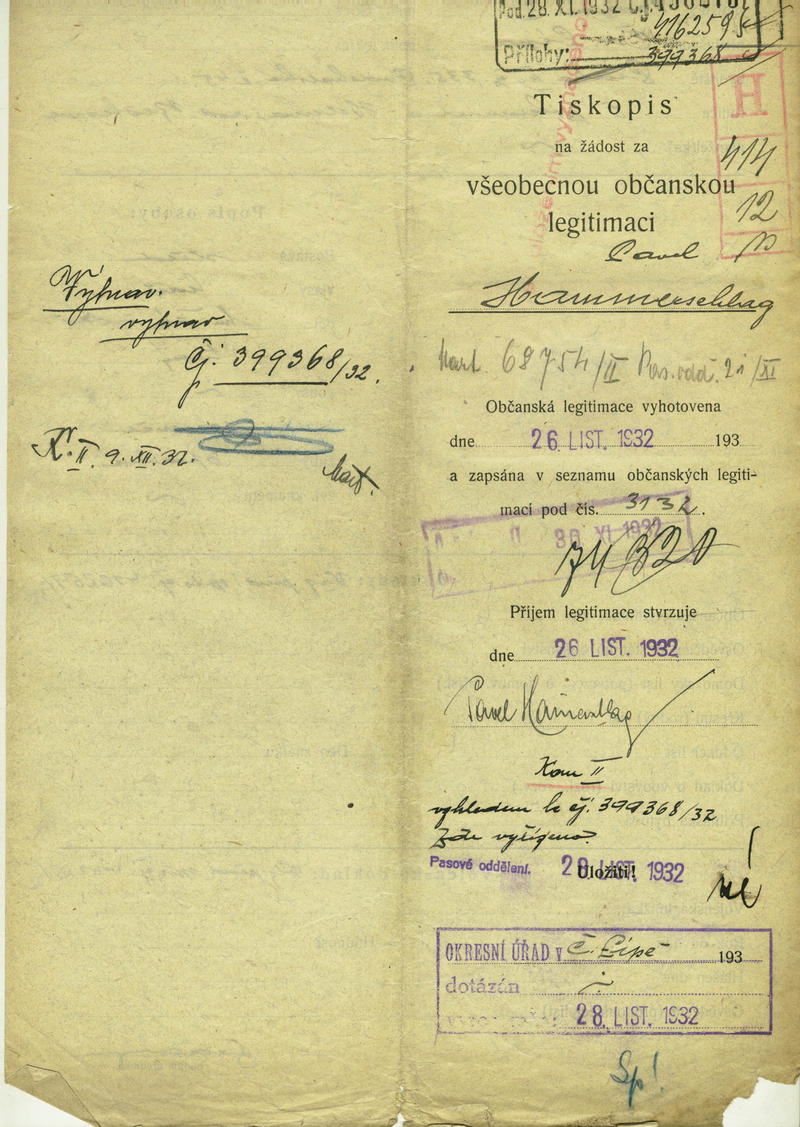 Pod. 28. XI. 1932 Č.j.
416259
Přílohy: 399368
H
Tiskopis
na žádost za
414
všeobecnou občanskou
12
legitimaci
Pavel
Hammerschlag
68754/II 21/XI
Občanská legitimace vyhotovena
dne 26. LIST. 1932 193
a zapsána v seznamu občanských legiti-
mací pod čís. 3132.
30 XI 1932
74320
Příjem legitimace stvrzuje
dne 26 LIST. 1932
Pavel Hammerschlag
Kom II
vzhledem k čj. 399368/32
zde vyřízeno.
Pasové oddělení. 28 LIST. 1932
Uložiti!
OKRESNÍ ÚŘAD v Č. Lípě 193
dotázán
28. LIST. 1932
Sp!
Výprav.
vyprav
čj. 399368/32.
K. II. 9. XII. 32.